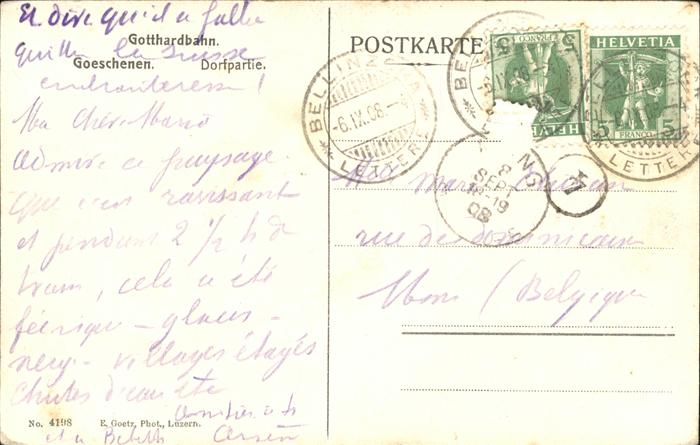 Et dire qu'il a fallu
quitter la Suisse
enchanteresse !
Gotthardbahn.
Goeschenen. Dorfpartie.
Ma chère Marie
Admire ce paysage
que c'est ravissant
et pendant 2 1/2 h de
tram, cela a été
féerique - glaciers -
neige - villages étagés
chutes d'eau etc
Amitiés à
et à
No. 4198 E. Goetz, Phot., Luzern.
POSTKARTE
HELVETIA
5 5
FRANCO
HELVETIA
5 5
FRANCO
BELLINZONA
-6.IX.08.-
LETTERE
LETTERE
SEPT
08
7
rue de
Mons (Belgique